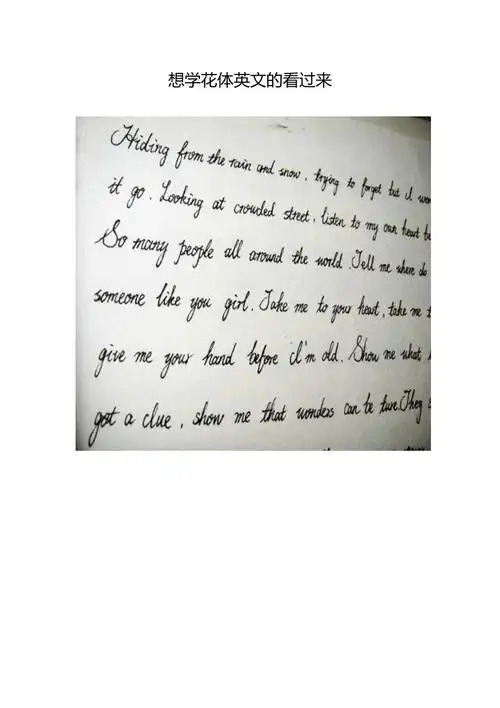 想学花体英文的看过来
Hiding from the rain and snow, trying to forget but I won
it go. Looking at crowded street, listen to my own heart be
So many people all around the world. Tell me where do
someone like you girl. Take me to your heart, take me t
give me your hand before I'm old. Show me what
got a clue, show me that wonders can be ture. They